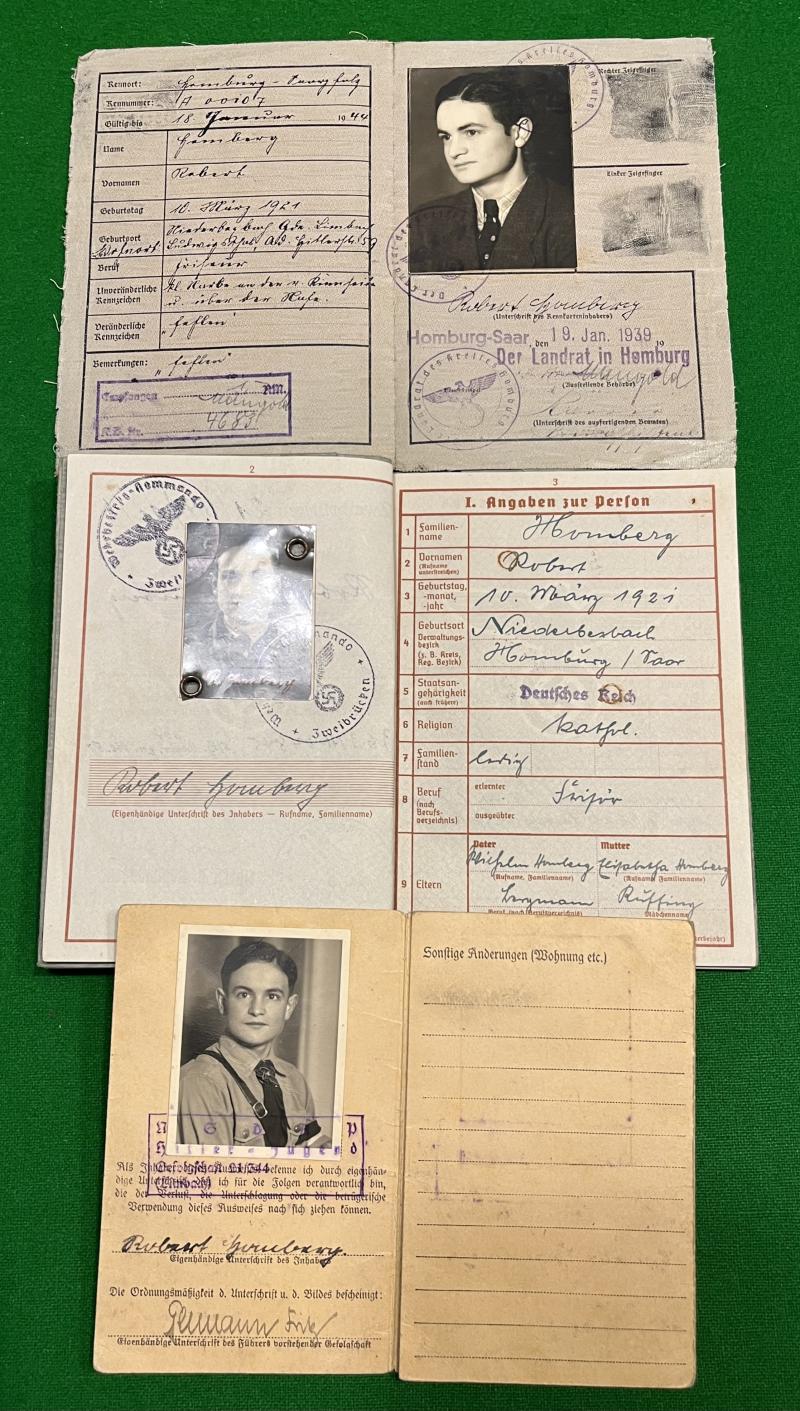 Kennort: Homburg-Saarpfalz
Kennummer: A 00107
Gültig bis 18. Januar 1944
Name Homberg
Vornamen Robert
Geburtstag 10. März 1921
Geburtsort Niederbexbach Gde. Limbach
Wohnort Ludwigsthal, Ad. Hitlerstr. 59
Beruf Friseur
Unveränderliche Kennzeichen kl. Narbe an der r. Kinnseite
u. über der Nase.
Veränderliche Kennzeichen "fehlen"
Bemerkungen: "fehlen"
Empfangen RM.
Mangold
4683
K.B. Nr.
Rechter Zeigefinger
Linker Zeigefinger
Der Landrat des Kreises Homburg
Robert Homberg
(Unterschrift des Kennkarteninhabers)
Homburg-Saar, den 19. Jan. 1939 19
Der Landrat in Homburg
Mangold
(Ausstellende Behörde)
Landrat des Kreises Homburg
(Unterschrift des ausfertigenden Beamten)
2
Wehrbezirks-Kommando
Zweibrücken
Robert Homberg
(Eigenhändige Unterschrift des Inhabers — Rufname, Familienname)
3
I. Angaben zur Person
1 Familienname Homberg
2 Vornamen (Rufname unterstreichen) Robert
3 Geburtstag, -monat, -jahr 10. März 1921
4 Geburtsort Verwaltungsbezirk (z. B. Kreis, Reg. Bezirk) Niederbexbach
Homburg / Saar
5 Staatsangehörigkeit (auch frühere) Deutsches Reich
6 Religion kathol.
7 Familienstand ledig
8 Beruf (nach Berufsverzeichnis) erlernter Frisör
ausgeübter
9 Eltern Vater Mutter
Wilhelm Homberg Elisabetha Homberg
(Rufname, Familienname) (Rufname, Familienname)
Bergmann Ruffing
Beruf (nach Berufsverzeichnis) Mädchenname
N S D A P
Hitler-Jugend
Gefolgschaft 21/344
(Limbach)
Als Inhaber dieses Ausweises bekenne ich durch eigenhändige
Unterschrift, daß ich für die Folgen verantwortlich bin,
die der Verlust, die Unterschlagung oder die betrügerische
Verwendung dieses Ausweises nach sich ziehen können.
Robert Homberg.
Eigenhändige Unterschrift des Inhabers
Die Ordnungsmäßigkeit d. Unterschrift u. d. Bildes bescheinigt:
Fritz
Eigenhändige Unterschrift des Führers vorstehender Gefolgschaft
Sonstige Änderungen (Wohnung etc.)